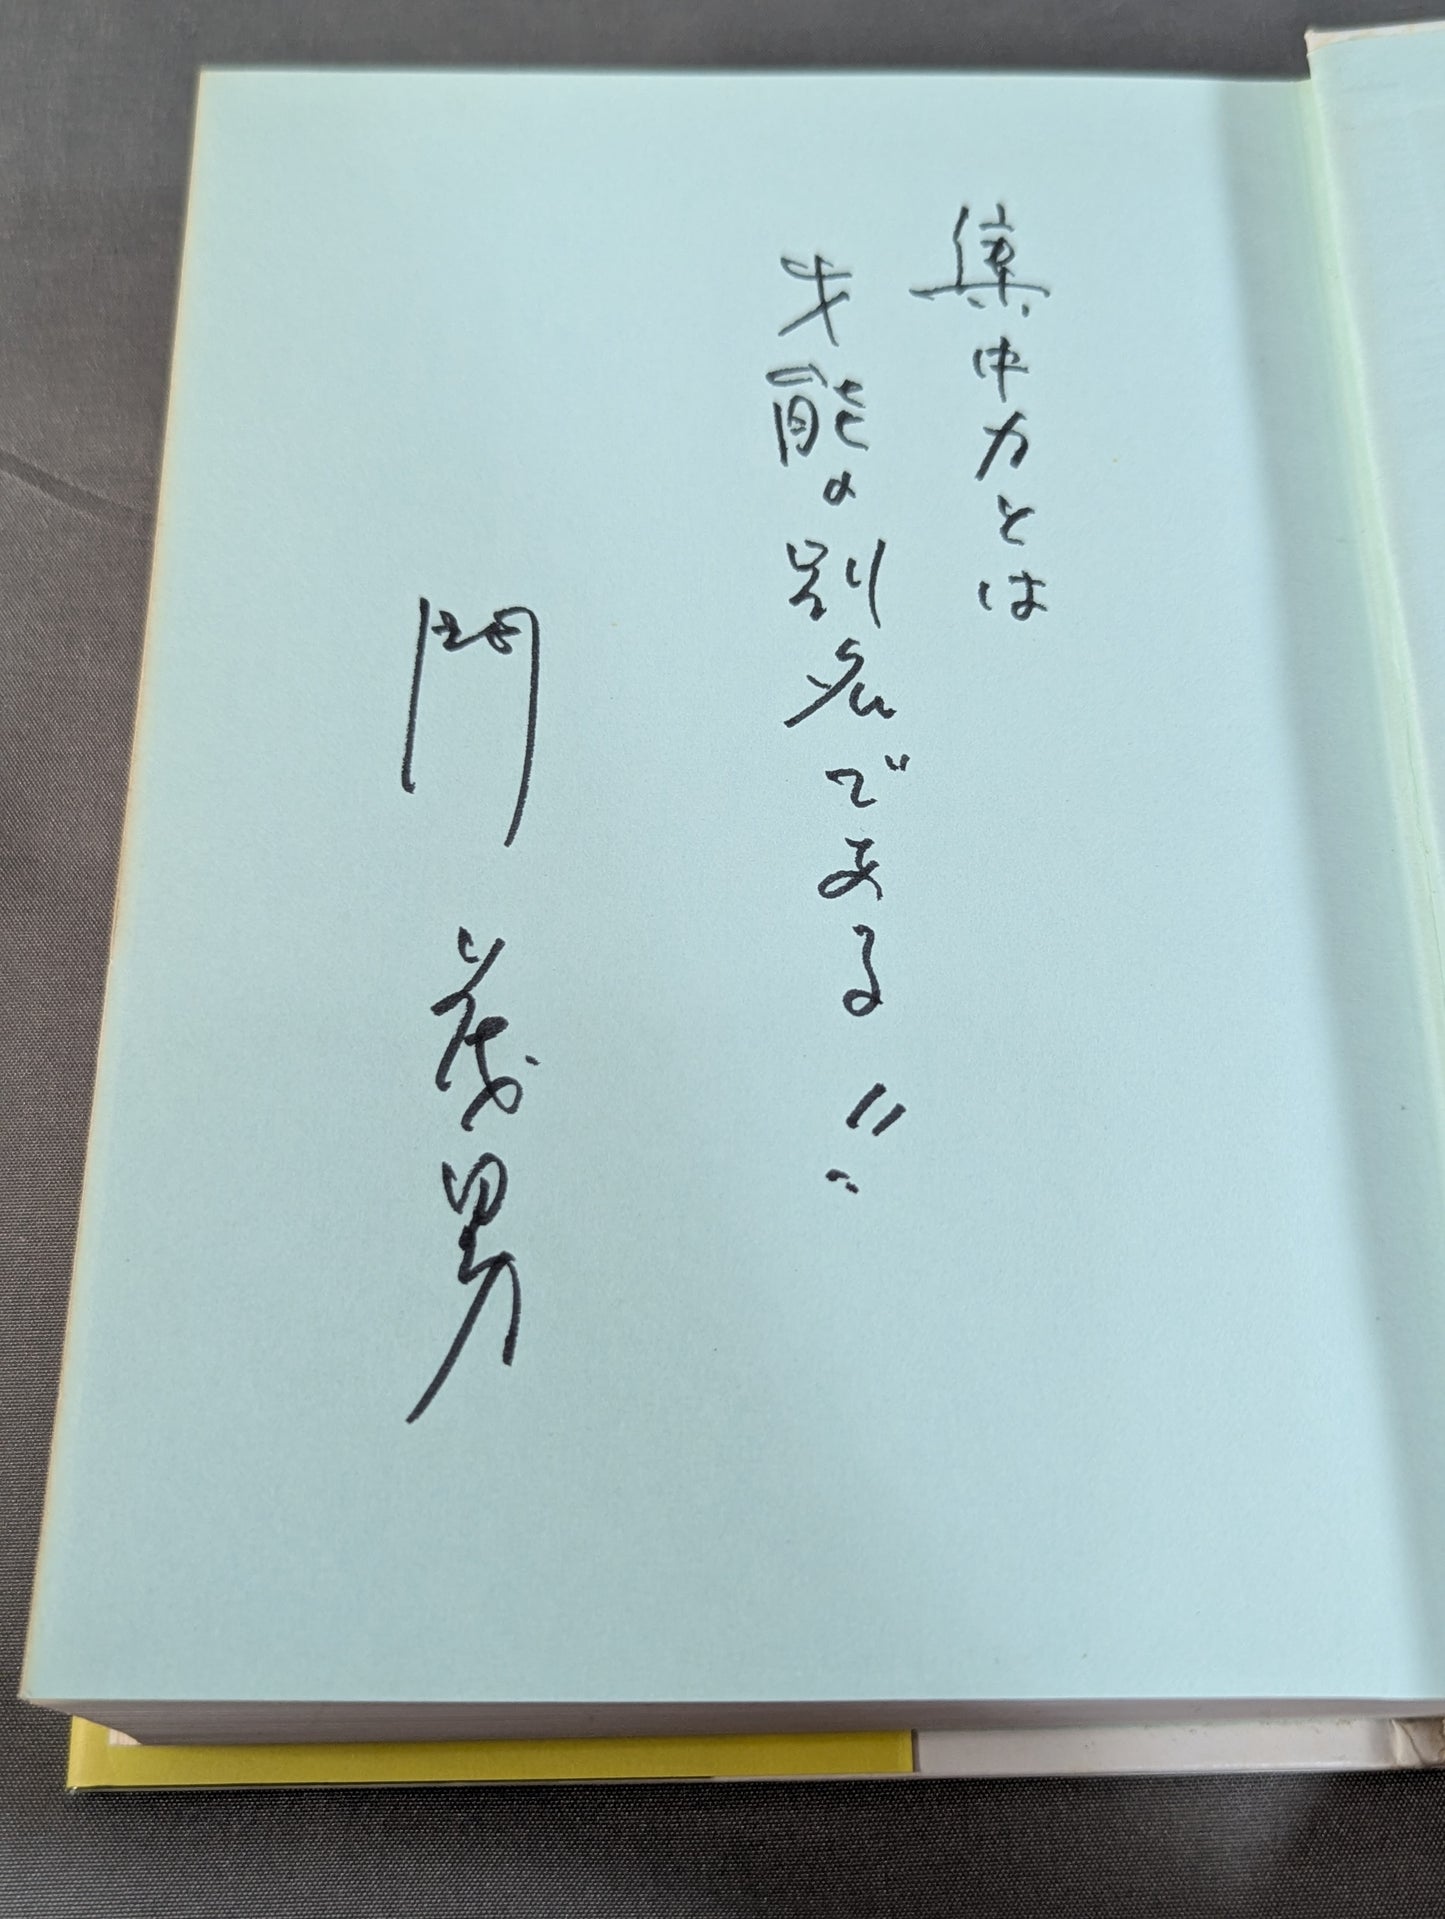 集中力とは
才能の別名である!!
門 茂男